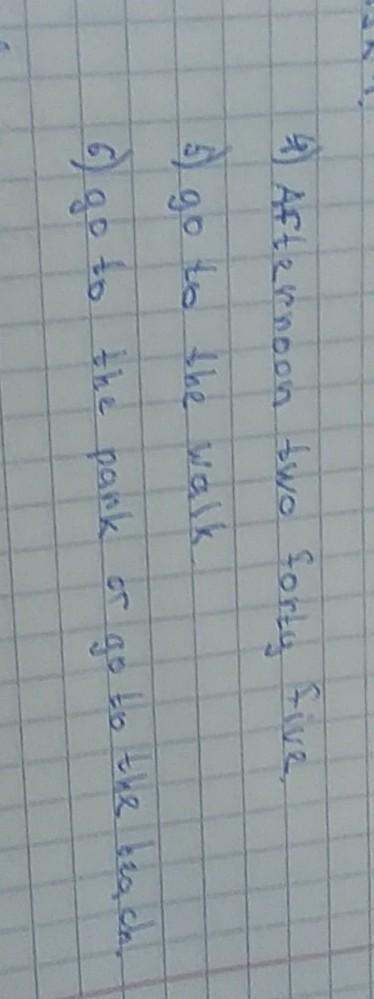 4) Afternoon two forty five.
5) go to the walk
6) go to the park or go to the beach.